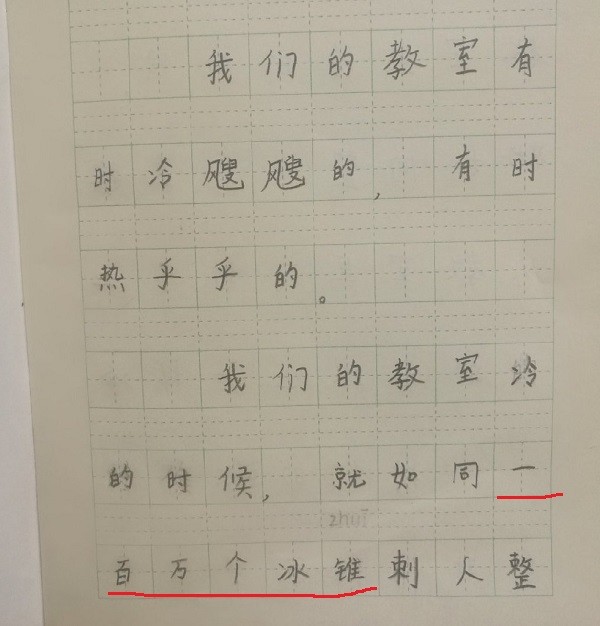 我们的教室有
时冷飕飕的，有时
热乎乎的。
我们的教室冷
的时候，就如同一
zhuī
百万个冰锥刺人整